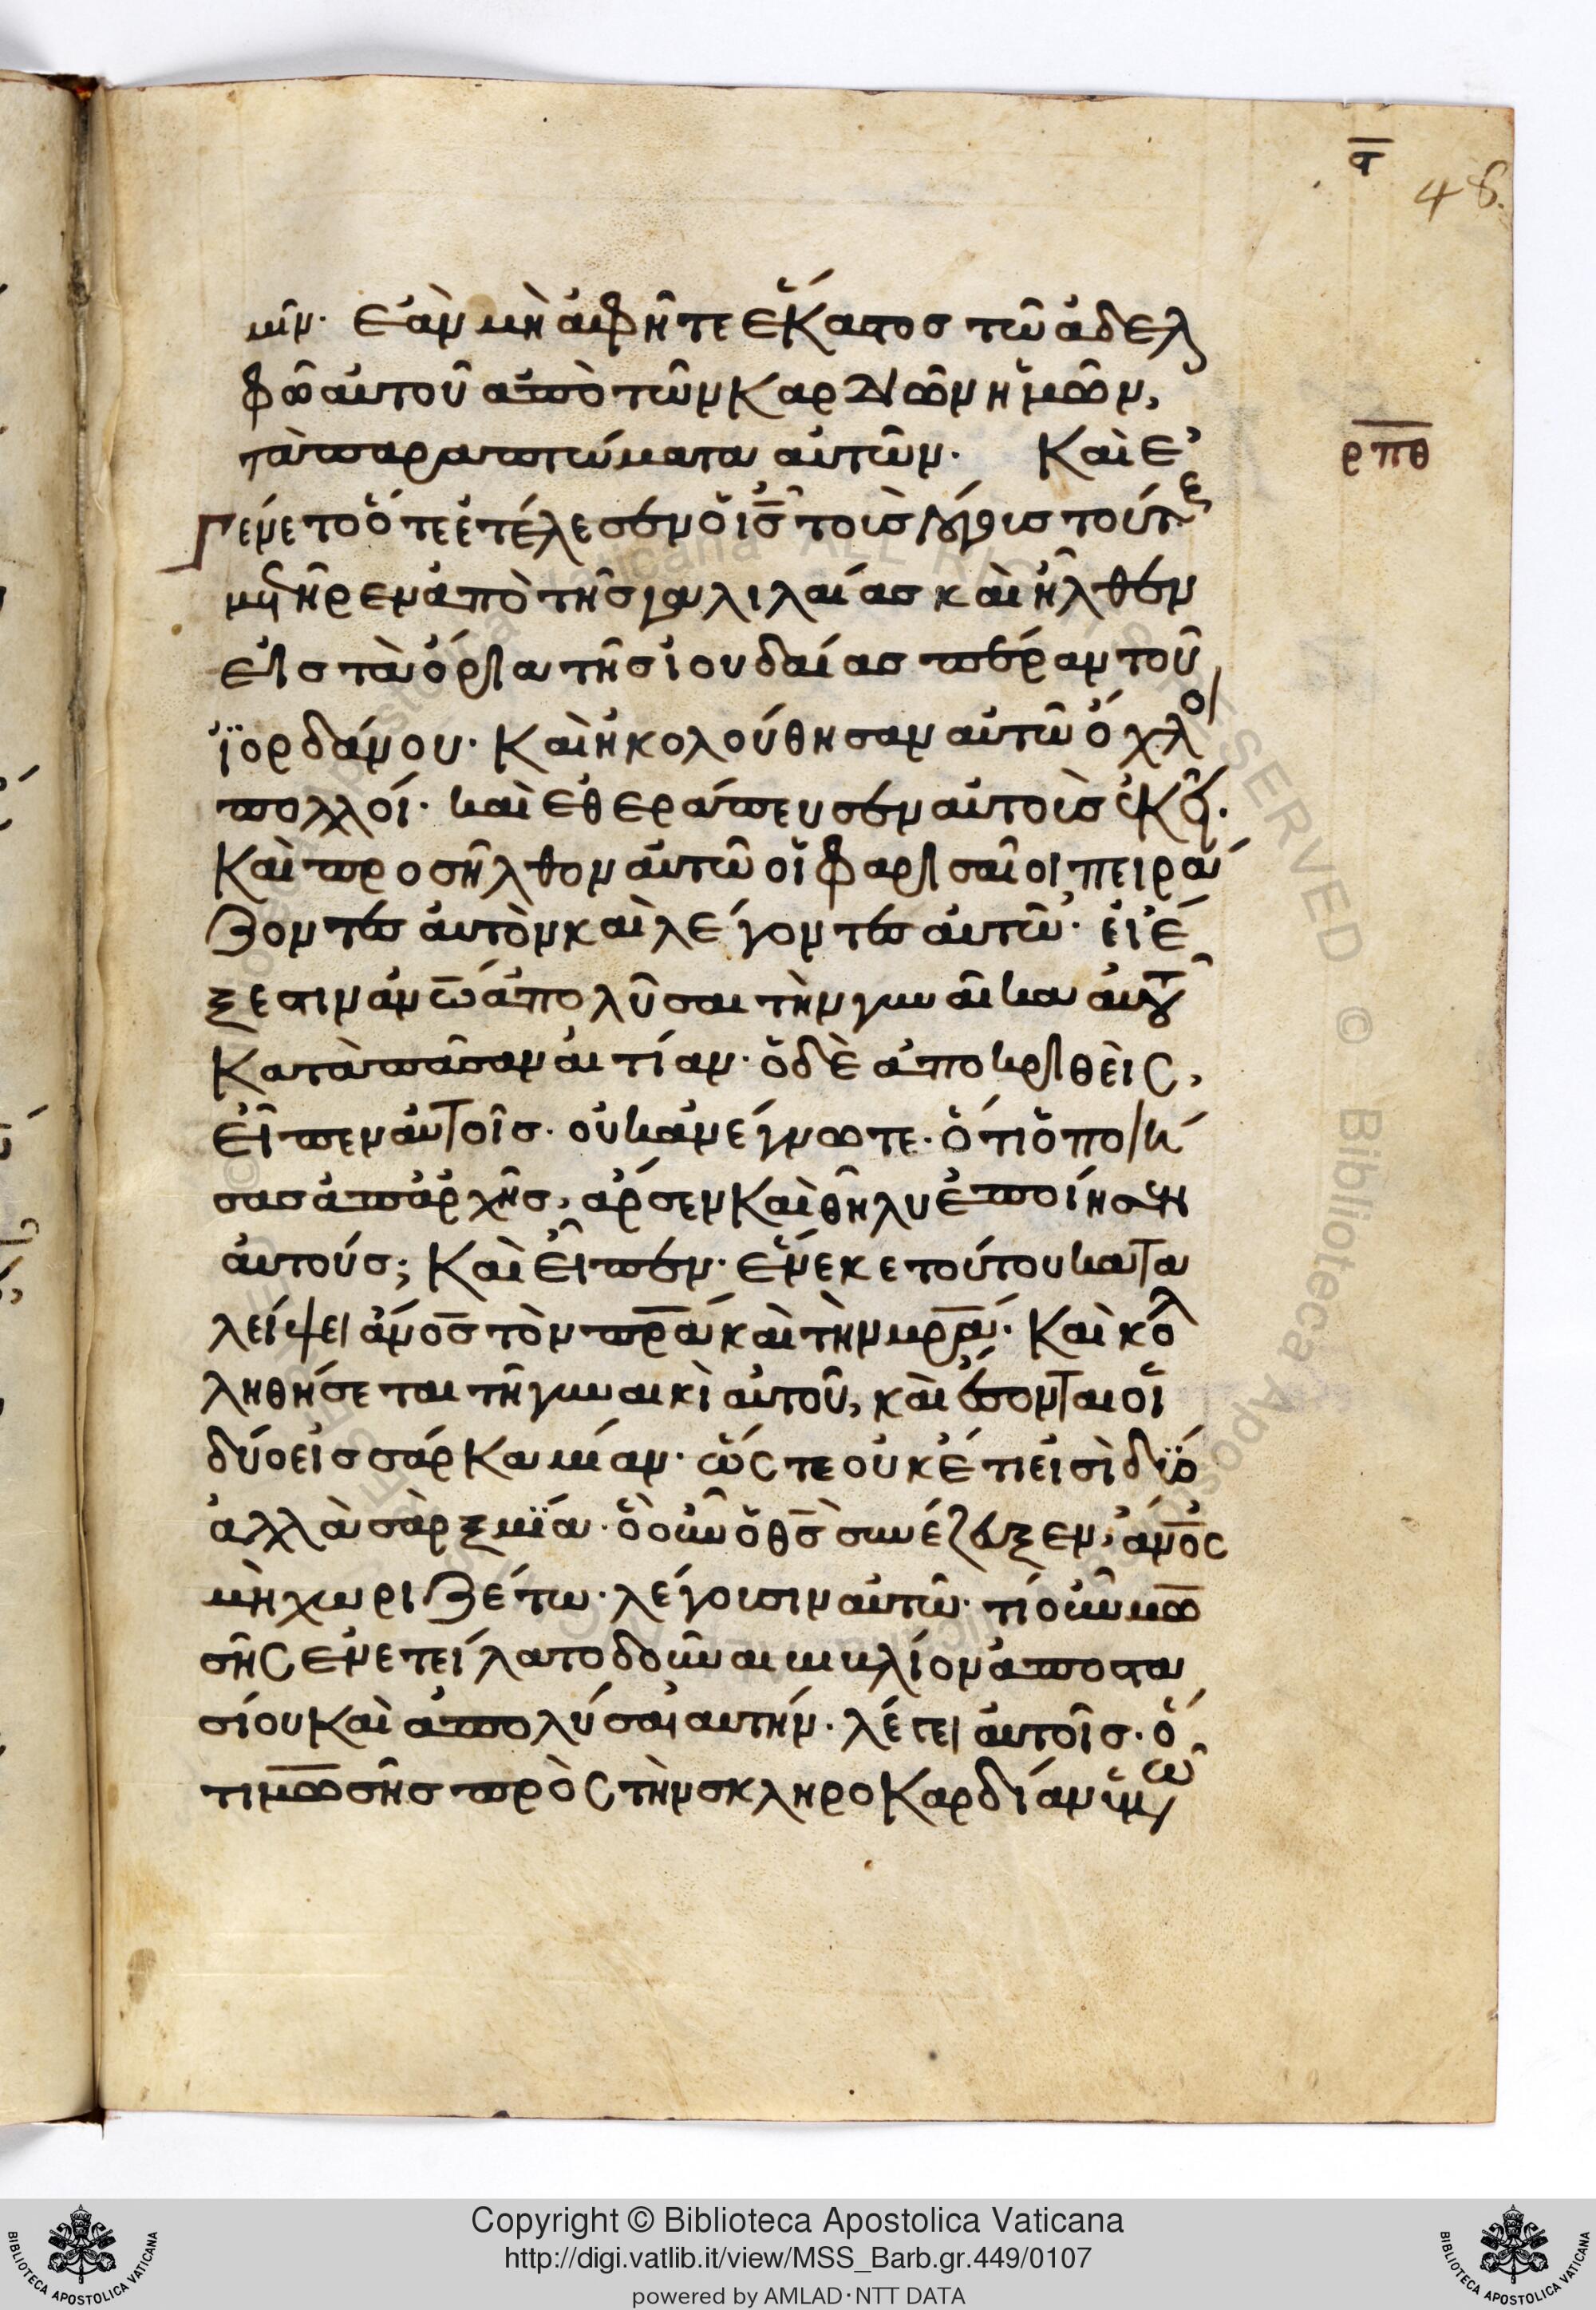 ϛ
48.
μῖν· ἐὰν μὴ ἀφῆτε ἕκαστος τῶ ἀδελ
φῶ αὐτοῦ ἀπὸ τῶν καρδιῶν ἡμῶν,
τὰ παραπτώματα αὐτῶν. Καὶ ἐ
ρπθ
γένετο ὅτε ἐτέλεσεν ὁ ις τοὺς λόγους τούτους
μετῆρεν ἀπὸ τῆς γαλιλαίας καὶ ἦλθεν
εἰς τὰ ὅρια τῆς ἰουδαίας πέραν τοῦ
ἰορδάνου· Καὶ ἠκολούθησαν αὐτῶ ὄχλοι
πολλοί· καὶ ἐθεράπευσεν αὐτοὺς ἐκεῖ.
Καὶ προσῆλθον αὐτῶ οἱ φαρισαῖοι πειρά
ζοντες αὐτὸν καὶ λέγοντες αὐτῶ· εἰ ἔ
ξεστιν ανω ἀπολῦσαι τὴν γυναῖκα αὐτοῦ
κατὰ πᾶσαν αἰτίαν· ὁ δὲ ἀποκριθεὶς,
εἶπεν αὐτοῖς· οὐκ ἀνέγνωτε· ὅτι ὁ ποιή
σας ἀπ' ἀρχῆς, ἄρσεν καὶ θῆλυ ἐποίησεν
αὐτούς; Καὶ εἶπεν· ἕνεκε τούτου κατα
λείψει ανος τὸν πρα καὶ τὴν μρα· Καὶ κολ
ληθήσεται τῆ γυναικὶ αὐτοῦ, καὶ ἔσονται οἱ
δύο εἰς σάρκα μίαν· ὥστε οὐκέτι εἰσὶ δϊό
ἀλλὰ σὰρξ μϊά· ὃ οὖν ὁ θς συνέζευξεν, ανος
μὴ χωριζέτω· λέγουσιν αὐτῶ· τί οὖν μω
σῆς ἐνετείλατο δοῦναι βιβλίον ἀποστα
σίου καὶ ἀπολύσαι αὐτήν· λέγει αὐτοῖς· ὅ
τι μωσῆς πρὸς τὴν σκληροκαρδίαν ὑμῶν
Copyright © Biblioteca Apostolica Vaticana
http://digi.vatlib.it/view/MSS_Barb.gr.449/0107
powered by AMLAD·NTT DATA
BIBLIOTECA APOSTOLICA VATICANA
BIBLIOTECA APOSTOLICA VATICANA